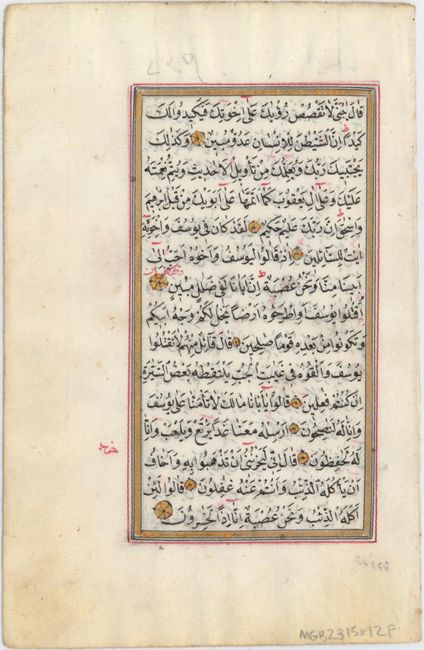 قَالَ يٰبُنَيَّ لَا تَقْصُصْ رُؤْيَاكَ عَلٰى اِخْوَتِكَ فَيَكِيدُوا لَكَ
كَيْدًا اِنَّ الشَّيْطٰنَ لِلْاِنْسَانِ عَدُوٌّ مُبِينٌ وَكَذٰلِكَ
يَجْتَبِيكَ رَبُّكَ وَيُعَلِّمُكَ مِنْ تَأْوِيلِ الْاَحَادِيثِ وَيُتِمُّ نِعْمَتَهُ
عَلَيْكَ وَعَلٰى اٰلِ يَعْقُوبَ كَمَا اَتَمَّهَا عَلٰى اَبَوَيْكَ مِنْ قَبْلُ اِبْرٰهِيمَ
وَاِسْحٰقَ اِنَّ رَبَّكَ عَلِيمٌ حَكِيمٌ لَقَدْ كَانَ فِي يُوسُفَ وَاِخْوَتِهِ
اٰيَاتٌ لِلسَّائِلِينَ اِذْ قَالُوا لَيُوسُفُ وَاَخُوهُ اَحَبُّ اِلٰى
اَبِينَا مِنَّا وَنَحْنُ عُصْبَةٌ اِنَّ اَبَانَا لَفِي ضَلَالٍ مُبِينٍ
اُقْتُلُوا يُوسُفَ اَوِ اطْرَحُوهُ اَرْضًا يَخْلُ لَكُمْ وَجْهُ اَبِيكُمْ
وَتَكُونُوا مِنْ بَعْدِهِ قَوْمًا صَالِحِينَ قَالَ قَائِلٌ مِنْهُمْ لَا تَقْتُلُوا
يُوسُفَ وَاَلْقُوهُ فِي غَيَابَتِ الْجُبِّ يَلْتَقِطْهُ بَعْضُ السَّيَّارَةِ
اِنْ كُنْتُمْ فَاعِلِينَ قَالُوا يَا اَبَانَا مَا لَكَ لَا تَأْمَنَّا عَلٰى يُوسُفَ
وَاِنَّا لَهُ لَنَاصِحُونَ اَرْسِلْهُ مَعَنَا غَدًا يَرْتَعْ وَيَلْعَبْ وَاِنَّا
لَهُ لَحَافِظُونَ قَالَ اِنِّي لَيَحْزُنُنِي اَنْ تَذْهَبُوا بِهِ وَاَخَافُ
اَنْ يَأْكُلَهُ الذِّئْبُ وَاَنْتُمْ عَنْهُ غَافِلُونَ قَالُوا لَئِنْ
اَكَلَهُ الذِّئْبُ وَنَحْنُ عُصْبَةٌ اِنَّا اِذًا لَخَاسِرُونَ
MGB2315x12F